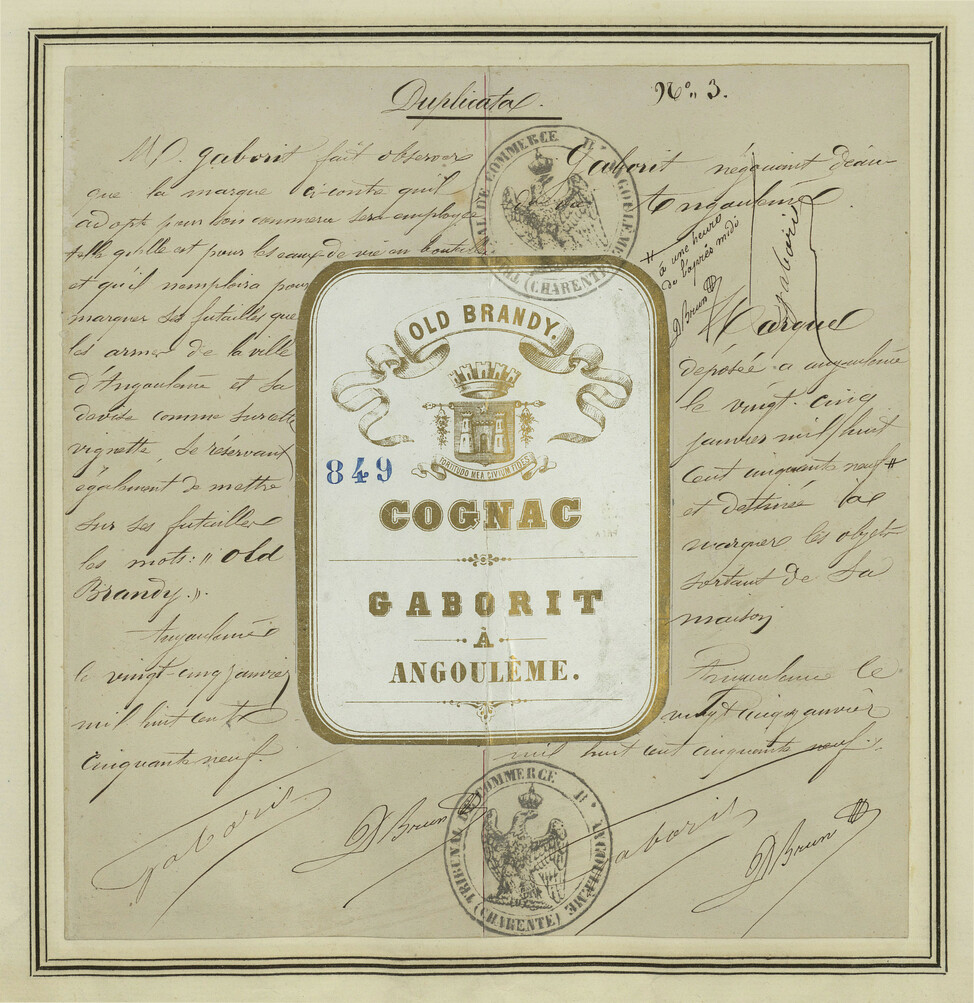 Duplicata.
No. 3.
M. D. Gaborit fait observer
que la marque ci-contre qu'il
adopte pour son commerce sera employée
telle qu'elle est pour les eaux de vie en bouteille
et qu'il n'emploira pour
marquer ses futailles que
les armes de la ville
d'Angoulême et sa
devise comme sur cette
vignette, se réservant
également de mettre
sur ses futailles
les mots: "Old
Brandy."
Angoulême
le vingt-cinq janvier
mil huit cent
cinquante neuf.
Gaborit
D Brun
TRIBUNAL DE COMMERCE D'ANGOULEME
(CHARENTE)
OLD BRANDY.
FORTITUDO MEA CIVIUM FIDES
849
COGNAC
GABORIT
À
ANGOULÊME.
Gaborit négociant d'eau
Angoulême
# à une heure
de l'après midi
D Brun
Gaborit
Marque
déposée a angoulême
le vingt-cinq
janvier mil huit
cent cinquante neuf #
et destinée à
marquer les objets
sortant de sa
maison
Angoulême le
vingt cinq janvier
mil huit cent cinquante neuf.
Gaborit
D Brun
TRIBUNAL DE COMMERCE D'ANGOULEME
(CHARENTE)